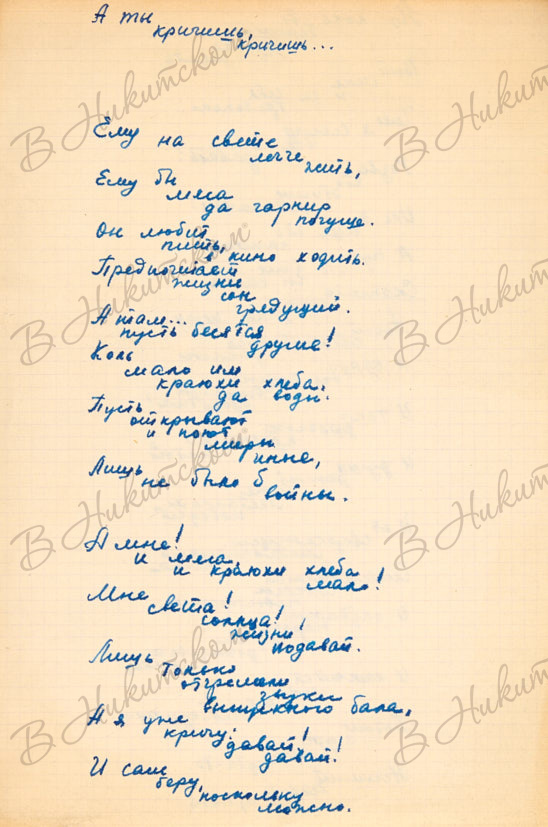 А ты
кричишь,
кричишь...
Ему на свете
легче
жить,
Ему бы
мяса
да гарнир
погуще.
Он любит
пить,
в кино ходить.
Предпочитает
жизни
сон
грядущий.
А там...
пусть бесятся
другие!
Коль
мало им
краюхи хлеба,
да воды.
Пусть
открывают
и поют
миры
иные,
Лишь
не было б
войны.
А мне!
и мяса,
и краюхи хлеба
мало!
Мне
света!
солнца!
жизни!
подавай.
Лишь
только
отгремели
звуки
выпускного бала,
А я уже
кричу:
давай!
давай!
И сам
беру,
поскольку
можно.
В. Никитском